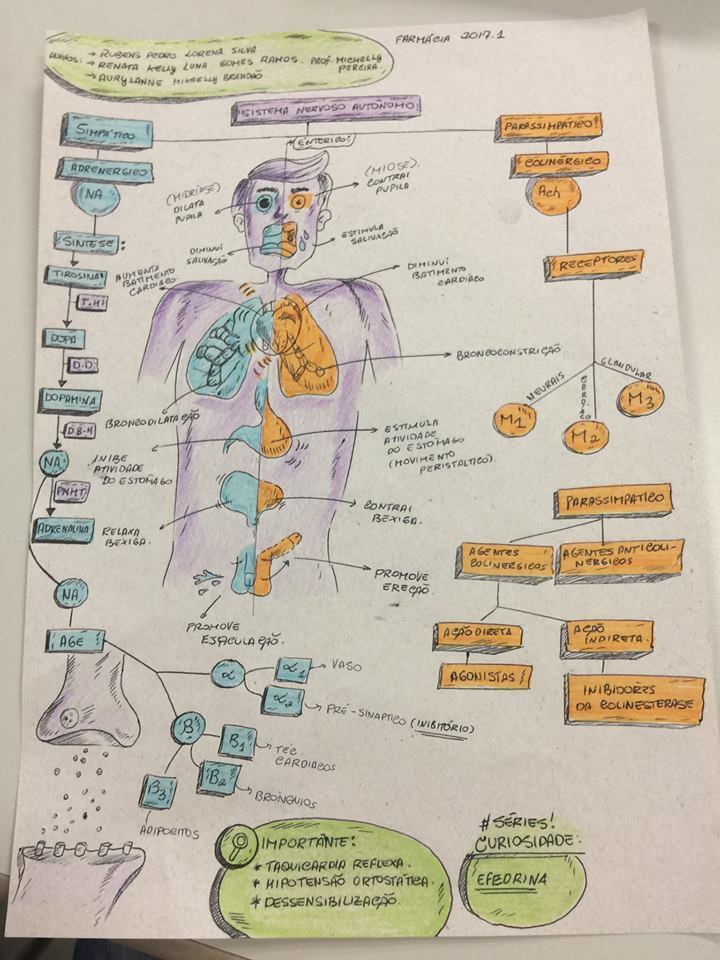 ALUNOS: → RUBENS PEDRO LORENA SILVA
→ RENATA KELLY LUNA GOMES RAMOS. PROF. MICHELLY
PEREIRA.
→ AURYLANNE MIKAELLY BRANDÃO
FARMÁCIA 2017.1
SISTEMA NERVOSO AUTÔNOMO
SIMPÁTICO
PARASSIMPÁTICO
(ENTÉRICO)
ADRENÉRGICO
COLINÉRGICO
NA
Ach
(MIDRÍASE)
DILATA
PUPILA
(MIOSE)
CONTRAI
PUPILA
SÍNTESE:
DIMINUI
SALIVAÇÃO
ESTIMULA
SALIVAÇÃO
RECEPTORES
TIROSINA
AUMENTA
BATIMENTO
CARDÍACO
DIMINUI
BATIMENTO
CARDÍACO
T.H
DOPA
D.D
BRONCOCONSTRIÇÃO
NEURAIS
CARDÍACO
GLANDULAR
M1
M2
M3
DOPAMINA
BRONCODILATAÇÃO
D.B-H
NA
INIBE
ATIVIDADE
DO ESTÔMAGO
ESTIMULA
ATIVIDADE
DO ESTÔMAGO
(MOVIMENTO
PERISTÁLTICO).
PNMT
ADRENALINA
RELAXA
BEXIGA.
CONTRAI
BEXIGA.
PARASSIMPATICO
AGENTES
COLINÉRGICOS
AGENTES ANTICOLI-
NÉRGICOS
NA
PROMOVE
EREÇÃO.
PROMOVE
EJACULAÇÃO.
AÇÃO DIRETA
AÇÃO
INDIRETA.
AGONISTAS
INIBIDORES
DA COLINESTERASE
AGE
α
α1
VASO
α2
PRÉ-SINAPTICO (INIBITÓRIO)
B
B1
TEC.
CARDIACOS
B2
BRÔNQUIOS
B3
ADIPOCITOS
IMPORTANTE:
* TAQUICARDIA REFLEXA.
* HIPOTENSÃO ORTOSTÁTICA.
* DESSENSIBILIZAÇÃO
#SÉRIES!
CURIOSIDADE:
EFEDRINA